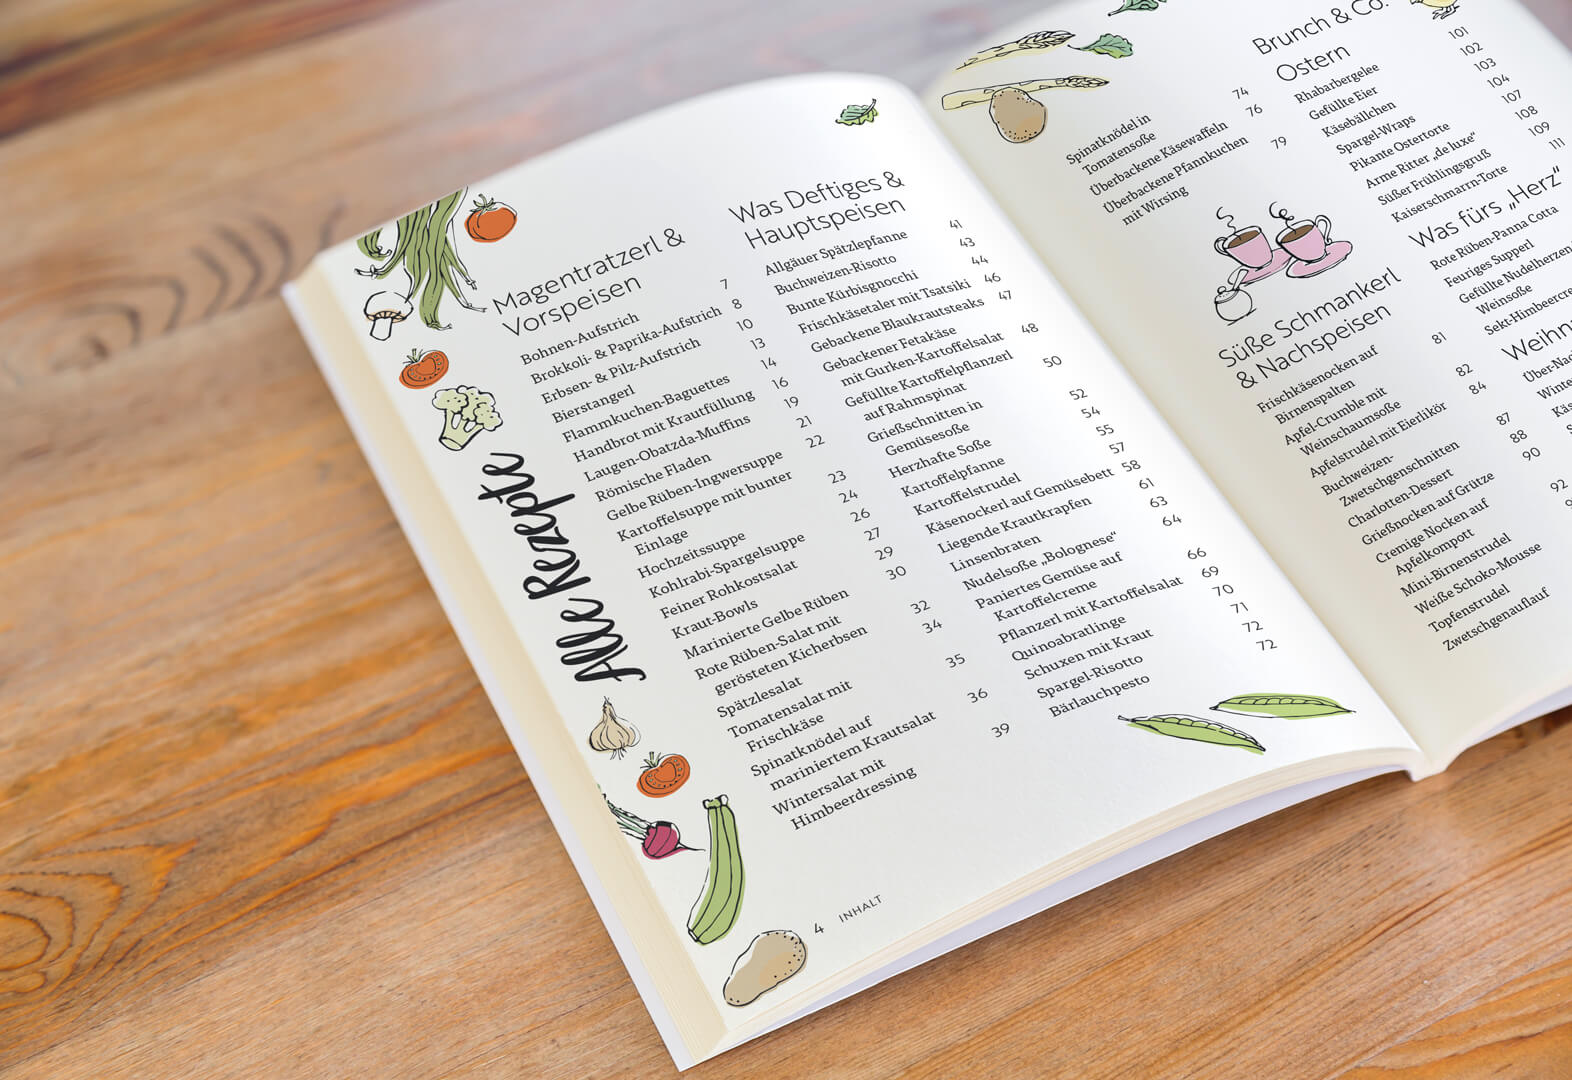 Alle Rezepte
Magentratzerl &
Vorspeisen
Bohnen-Aufstrich 7
Brokkoli- & Paprika-Aufstrich 8
Erbsen- & Pilz-Aufstrich 10
Bierstangerl 13
Flammkuchen-Baguettes 14
Handbrot mit Krautfüllung 16
Laugen-Obatzda-Muffins 19
Römische Fladen 21
Gelbe Rüben-Ingwersuppe 22
Kartoffelsuppe mit bunter
Einlage 23
Hochzeitssuppe 24
Kohlrabi-Spargelsuppe 26
Feiner Rohkostsalat 27
Kraut-Bowls 29
Marinierte Gelbe Rüben 30
Rote Rüben-Salat mit
gerösteten Kicherbsen 32
Spätzlesalat 34
Tomatensalat mit
Frischkäse 35
Spinatknödel auf
mariniertem Krautsalat 36
Wintersalat mit
Himbeerdressing 39
Was Deftiges &
Hauptspeisen
Allgäuer Spätzlepfanne 41
Buchweizen-Risotto 43
Bunte Kürbisgnocchi 44
Frischkäsetaler mit Tsatsiki 46
Gebackene Blaukrautsteaks 47
Gebackener Fetakäse
mit Gurken-Kartoffelsalat 48
Gefüllte Kartoffelpflanzerl
auf Rahmspinat 50
Grießschnitten in
Gemüsesoße 52
Herzhafte Soße 54
Kartoffelpfanne 55
Kartoffelstrudel 57
Käsenockerl auf Gemüsebett 58
Liegende Krautkrapfen 61
Linsenbraten 63
Nudelsoße „Bolognese“ 64
Paniertes Gemüse auf
Kartoffelcreme 66
Pflanzerl mit Kartoffelsalat 69
Quinoabratlinge 70
Schuxen mit Kraut 71
Spargel-Risotto 72
Bärlauchpesto 72
4 INHALT
Spinatknödel in
Tomatensoße 74
Überbackene Käsewaffeln 76
Überbackene Pfannkuchen
mit Wirsing 79
Süße Schmankerl
& Nachspeisen
Frischkäsenocken auf
Birnenspalten 81
Apfel-Crumble mit
Weinschaumsoße 82
Apfelstrudel mit Eierlikör 84
Buchweizen-
Zwetschgenschnitten 87
Charlotten-Dessert 88
Grießnocken auf Grütze 90
Cremige Nocken auf
Apfelkompott 92
Mini-Birnenstrudel
Weiße Schoko-Mousse
Topfenstrudel
Zwetschgenauflauf
Brunch & Co.
Ostern
Rhabarbergelee 101
Gefüllte Eier 102
Käsebällchen 103
Spargel-Wraps 104
Pikante Ostertorte 107
Arme Ritter „de luxe“ 108
Süßer Frühlingsgruß 109
Kaiserschmarrn-Torte 111
Was fürs „Herz“
Rote Rüben-Panna Cotta
Feuriges Supperl
Gefüllte Nudelherzen
Weinsoße
Sekt-Himbeercre
Weihn
Über-Na
Winte
Käs